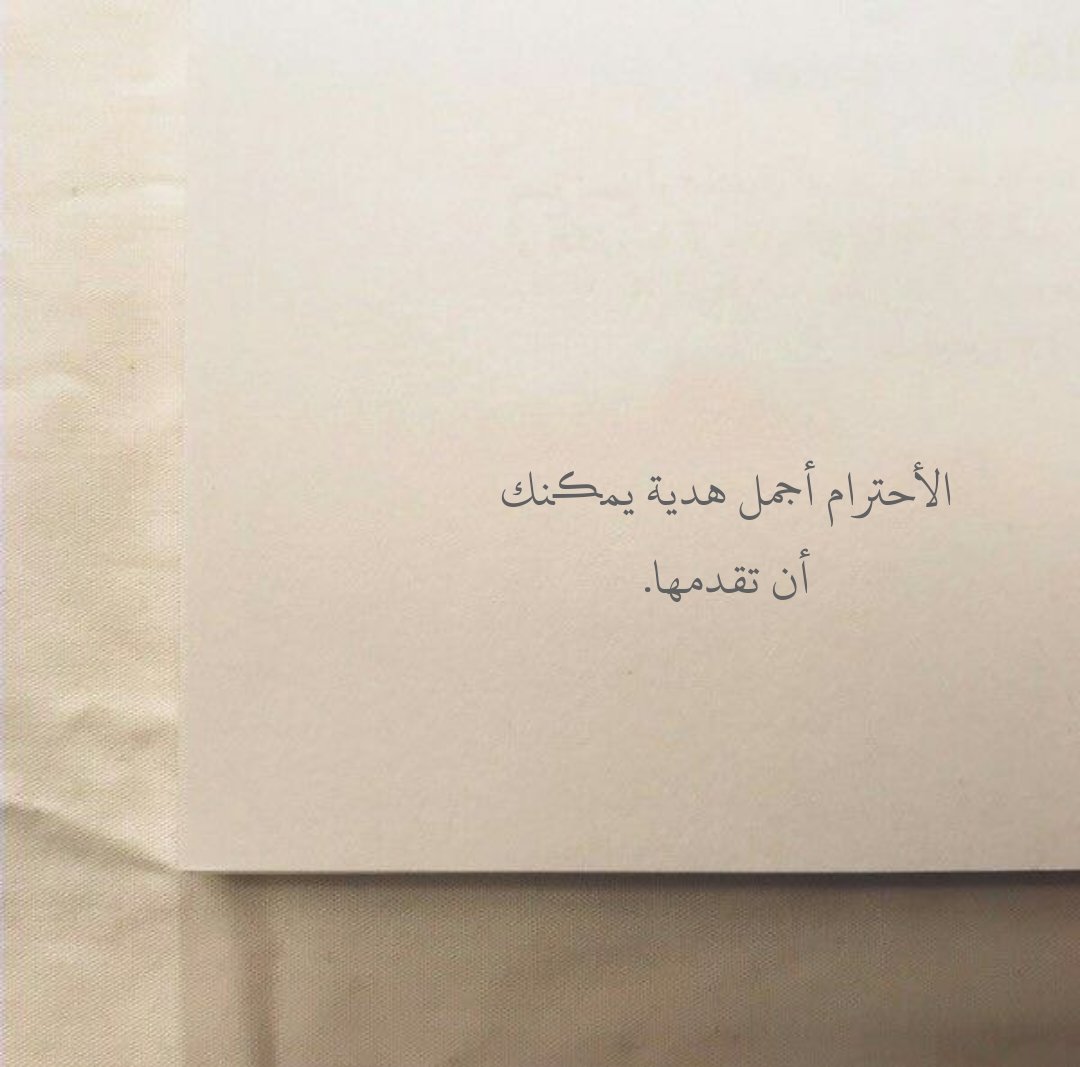 الأحترام أجمل هدية يمكنك
أن تقدمها.